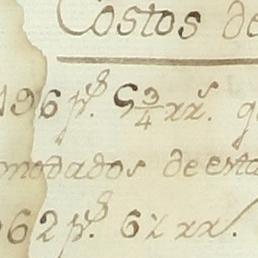 Costos de
196 p.s 5 3/4 rr.s q
modados de esta
962 p.s 6 1/2 rr.